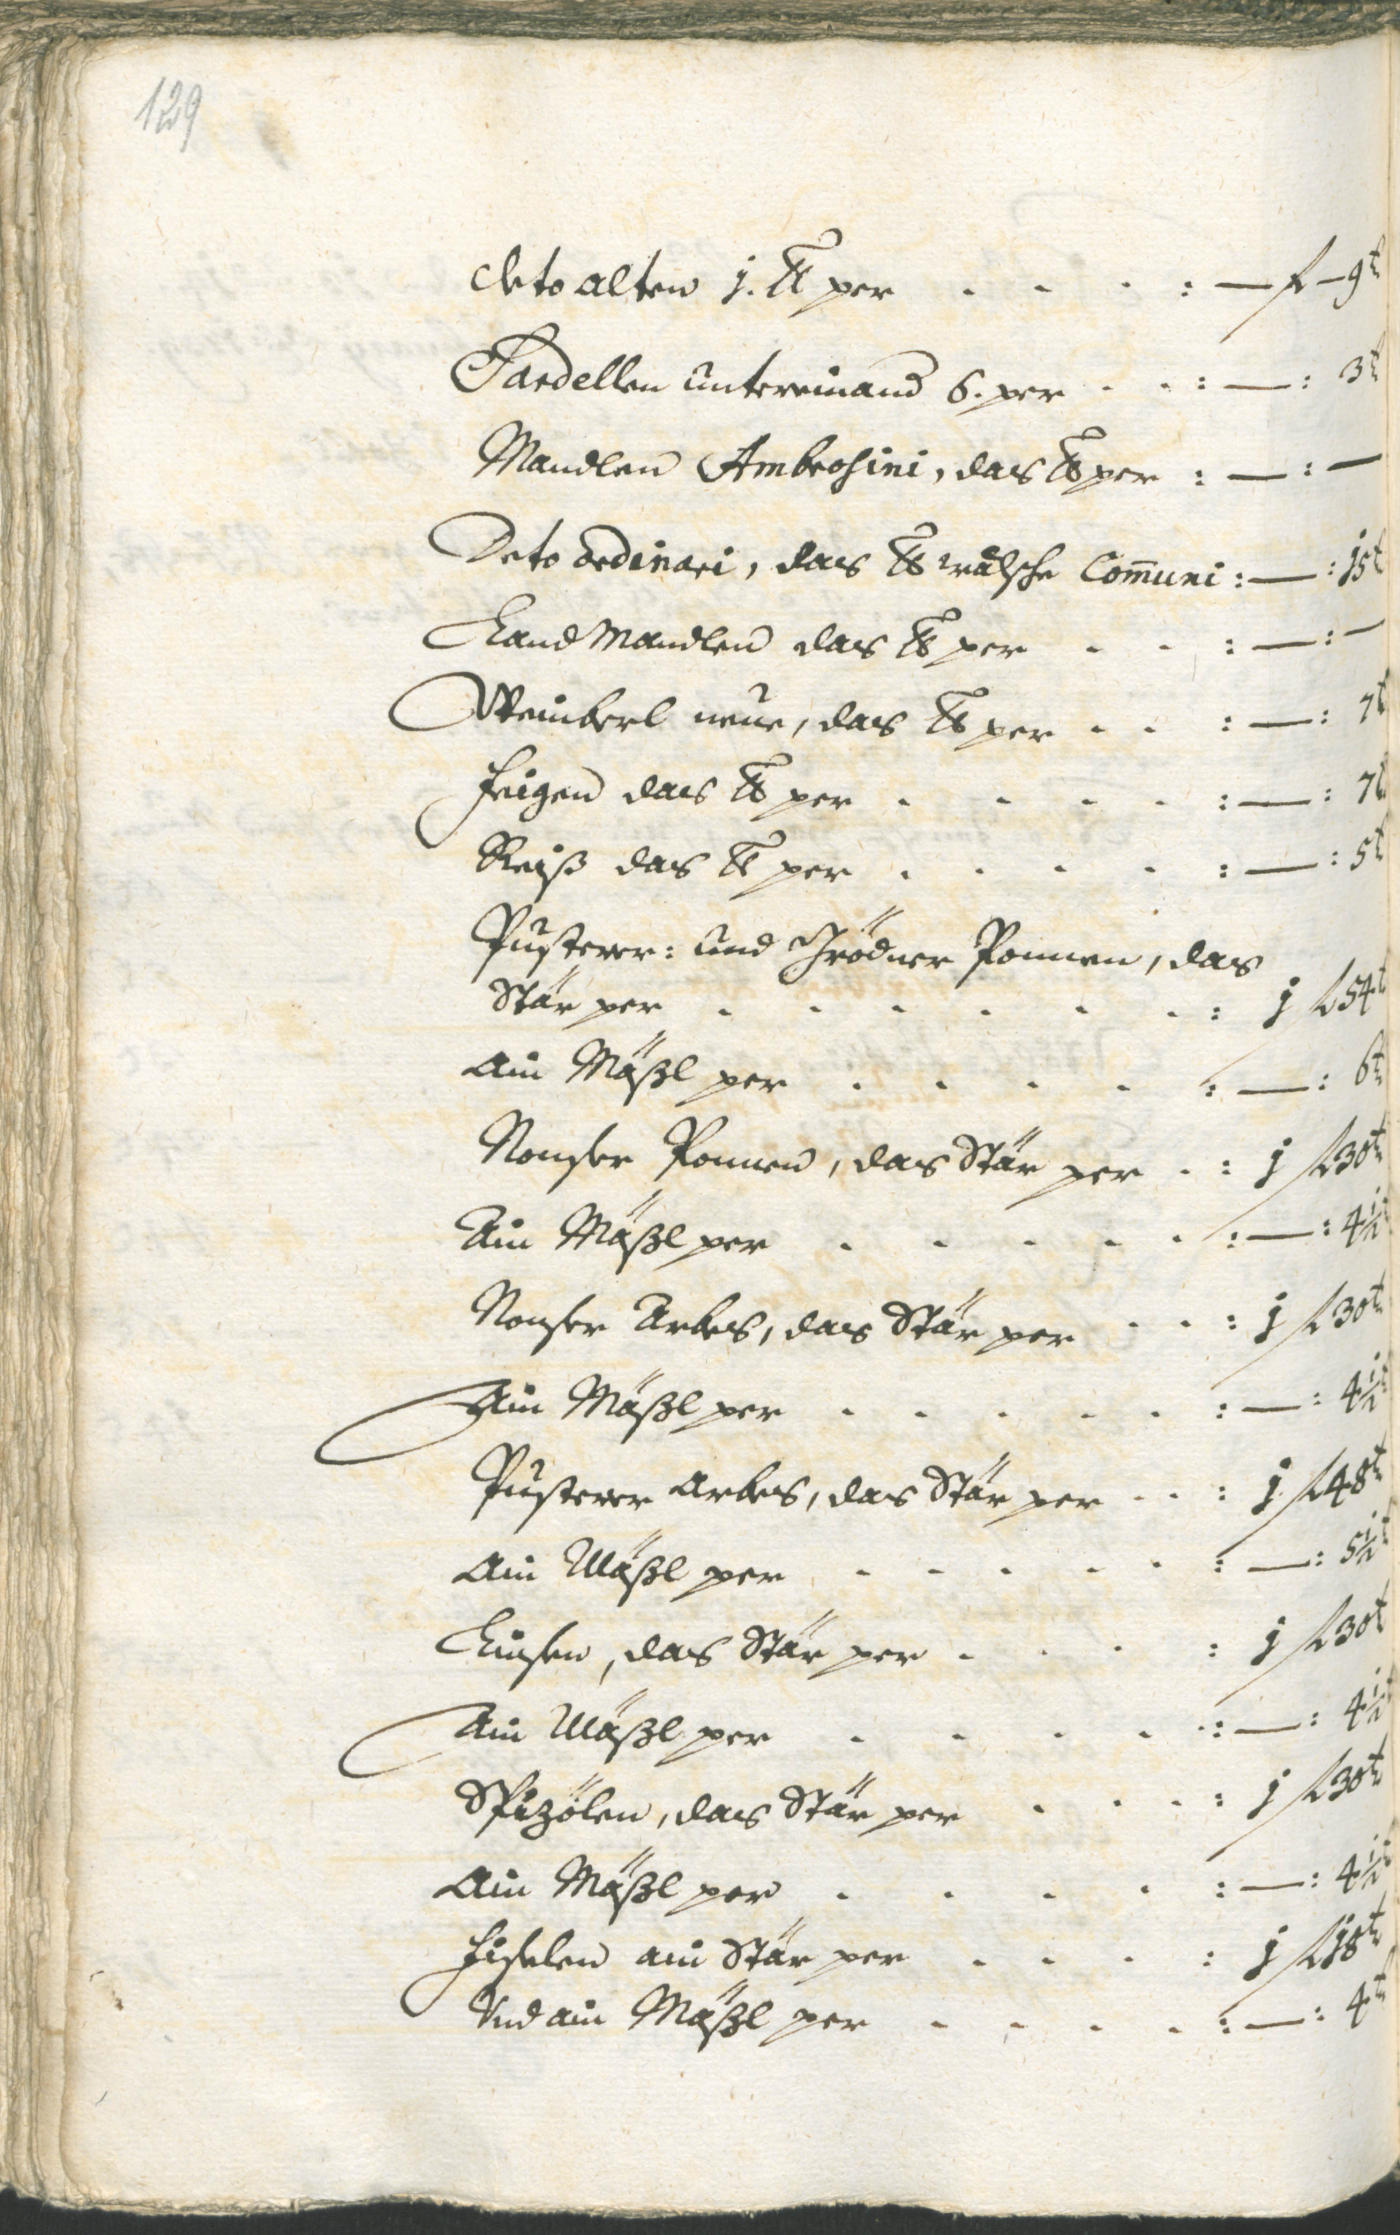 129
deto alten j. ℔ per . . . : — f — 9 t
Sardellen untereinand 6. per . . : — : 3 t
Mandlen Ambrosini, das ℔ per : — : —
Deto ordinari, das ℔ wälsche Com̄uni : — : j5 t
Land Mandlen das ℔ per . . : — : —
Weinberl neue, das ℔ per . . : — : 7 t
Feigen das ℔ per . . . . : — : 7 t
Reiß das ℔ per . . . . : — : 5 t
Pusterer: und Grödner Ponnen, das
Stär per . . . . . . : j f 54 t
ain Mäßl per . . . . : — : 6 t
Nonser Ponnen, das Stär per . : j f 30 t
Ain Mäßl per . . . . . : — : 4½
Nonser Arbes, das Stär per . . : j f 30 t
Ain Mäßl per . . . . . : — : 4½
Pusterer Arbes, das Stär per . . : j f 48 t
Ain Mäßl per . . . . . : — : 5½ t
Linsen, das Stär per . . . : j f 30 t
Ain Mäßl per . . . . : — : 4½
Spizölen, das Stär per . . . : j f 30 t
Ain Mäßl per . . . . : — : 4½
Fiselen ain Stär per . . . . : j f j8 t
Und ain Mäßl per . . . . : — : 4 t